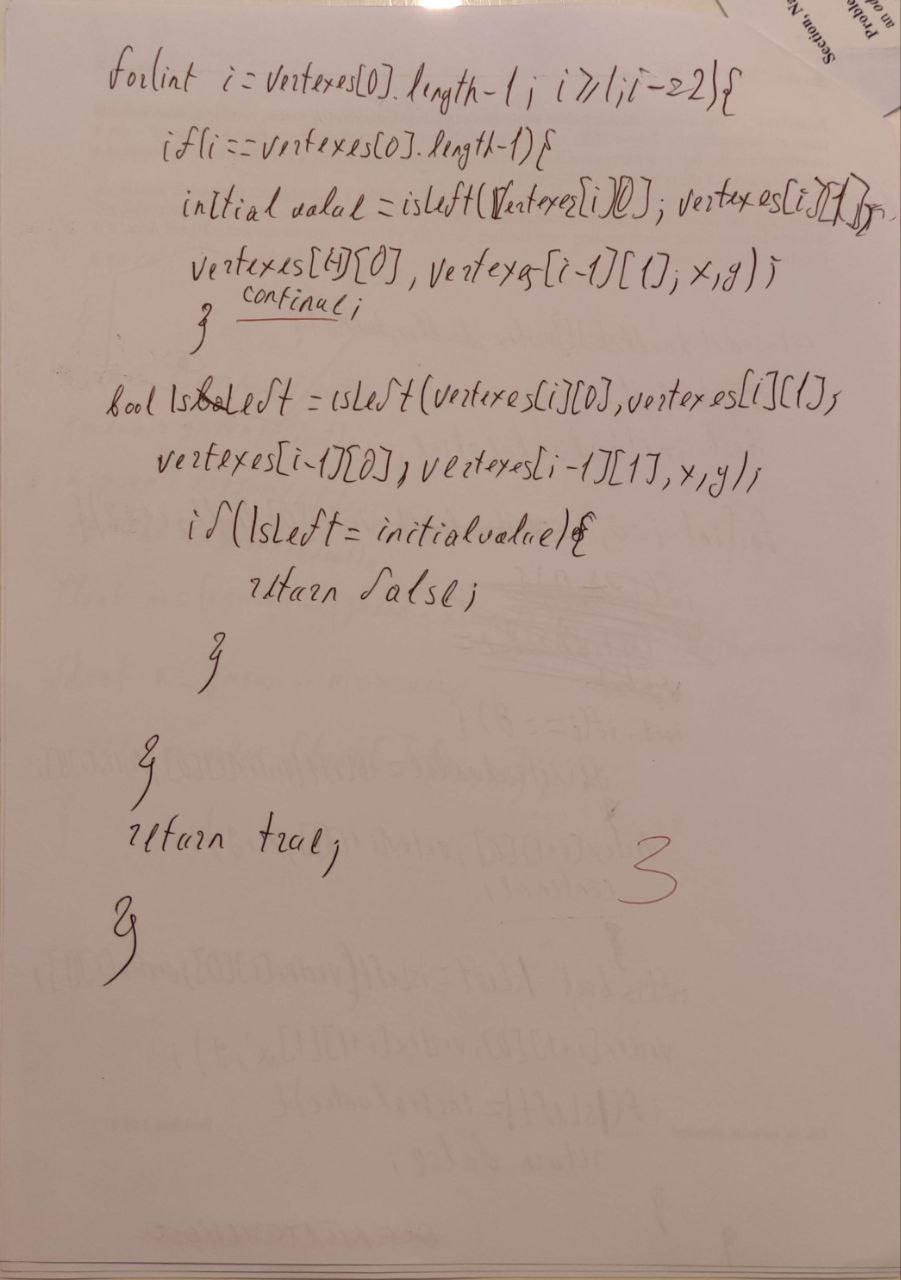 Section, Na
Proble
an od
for(int i = vertexes[0].length-1; i>=1; i-=2){
if(i==vertexes[0].length-1){
initial value = isLeft(Vertexes[i][0]; vertexes[i][1],
vertexes[i-1][0], vertexes[i-1][1]; x,y);
continue;
}
bool IsLeft = isLeft(vertexes[i][0], vertexes[i][1],
vertexes[i-1][0], vertexes[i-1][1], x,y);
if(IsLeft = initialvalue){
return false;
}
}
return true;
}
3